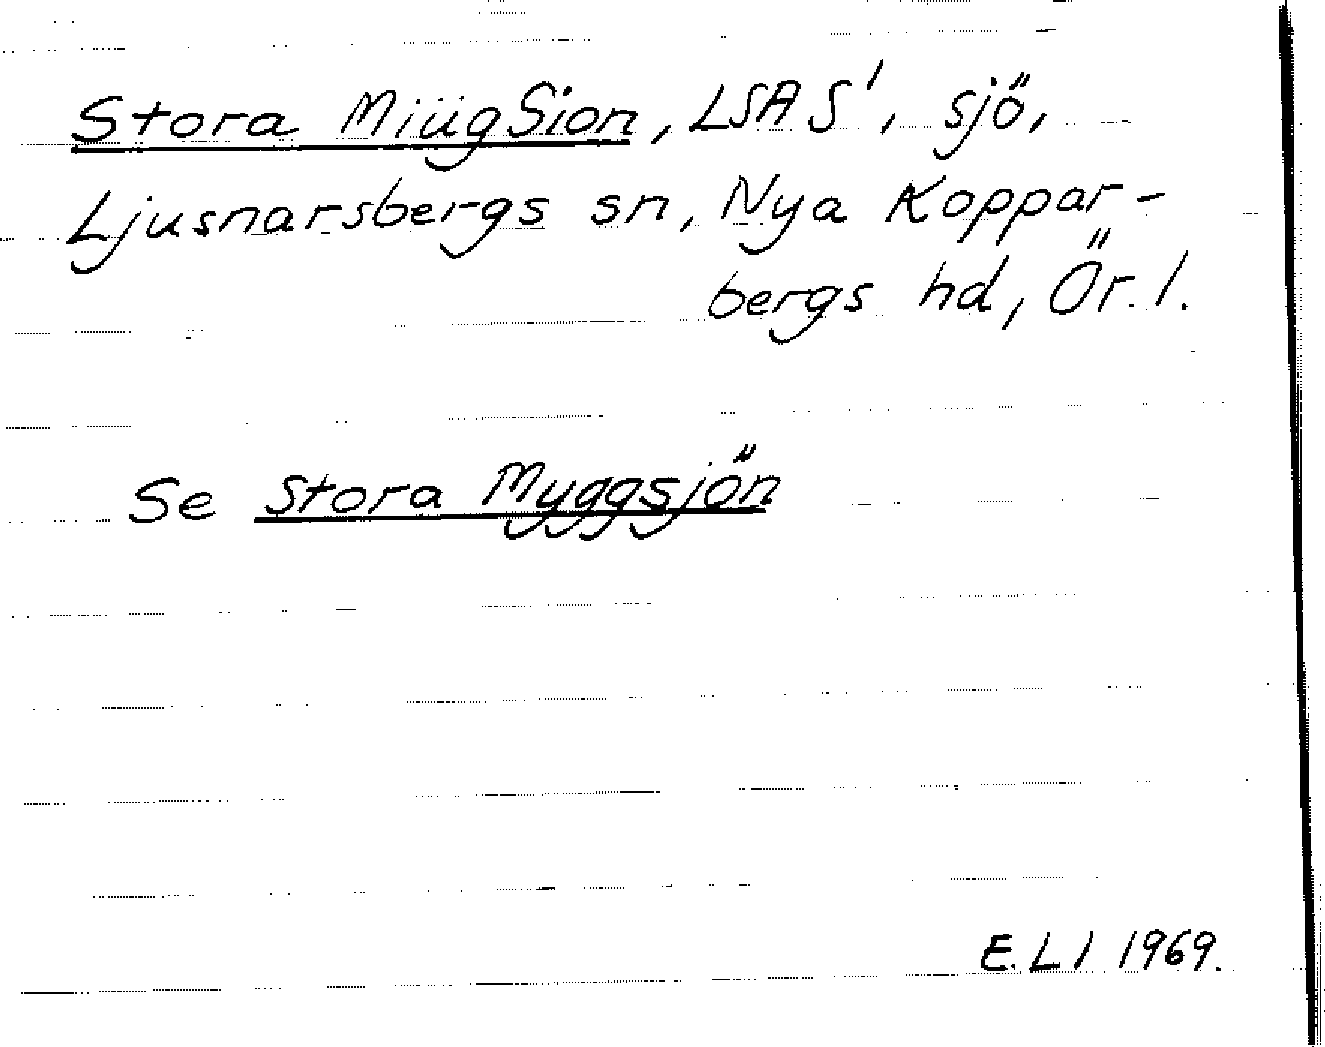 Stora MiügSion, LSA S', sjö,
Ljusnarsbergs sn, Nya Koppar-
bergs hd, Ör. l.
Se Stora Myggsjön
E. Ll 1969.